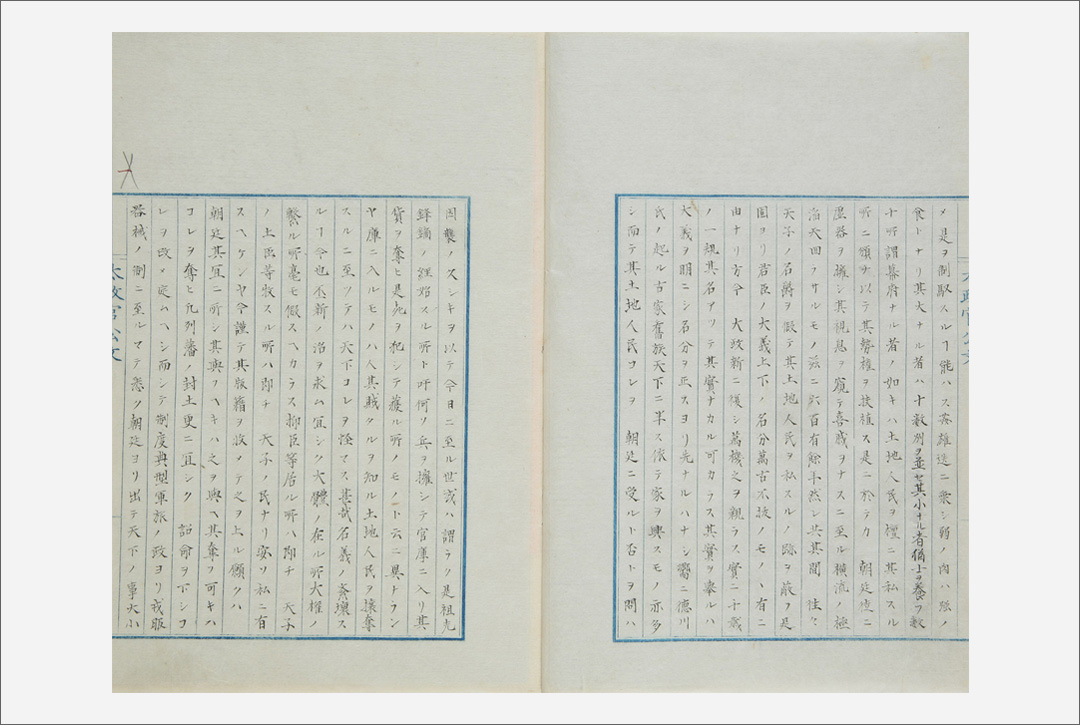 メ是ヲ制馭スルヿ能ハス英雄迭ニ乗シ弱ノ肉ハ强ノ
食トナリ其大ナル者ハ十數州ヲ並セ其小ナル者猶士ヲ養フ數
千所謂幕府ナル者ノ如キハ土地人民ヲ擅ニ其私スル
所ニ頒チ以テ其勢權ヲ扶植ス是ニ於テカ 朝廷徒ニ
虛器ヲ擁シ其視息ヲ窺テ喜戚ヲナスニ至ル橫流ノ極
滔天囬ラサルモノ茲ニ六百有餘年然シ共其間 往々
天子ノ名爵ヲ假テ其土地人民ヲ私スルノ跡ヲ蔽フ是
固ヨリ君臣ノ大義上下ノ名分萬古不拔ノモノヽ有ニ
由ナリ方今 大政新ニ復シ萬機之ヲ親ラス實ニ千歳
ノ一機其名アリテ其實ナカル可カラス其實ヲ擧ルハ
大義ヲ明ニシ名分ヲ正スヨリ先ナルハナシ嚮ニ德川
氏ノ起ル古家舊族天下ニ半ス依テ家ヲ興スモノ亦多
シ而テ其土地人民コレヲ 朝廷ニ受ルト否トヲ問ハ
因襲ノ久シキヲ以テ今日ニ至ル世或ハ謂ラク是祖先
鋒鏑ノ經始スル所ト吁何ソ兵ヲ擁シテ官庫ニ入リ其
貨ヲ奪ヒ是死ヲ犯シテ獲ル所ノモノト云ニ異トラン
ヤ庫ニ入ルモノハ人其賊タルヲ知ル土地人民ヲ攘奪
スルニ至ツテハ天下コレヲ怪マス甚哉名義ノ紊壞ス
ルヿ今也丕新ノ治ヲ求ム宜シク大體ノ在ル所大權ノ
繫ル所毫モ假スヘカラス抑臣等居ル所ハ卽チ 天子
ノ土臣等牧スル所ハ卽チ 天子ノ民ナリ安ソ私ニ有
スヘケンヤ今謹テ其版籍ヲ收メテ之ヲ上ル願クハ
朝廷其宜ニ所シ其與フヘキハ之ヲ與ヘ其奪フ可キハ
コレヲ奪ヒ凡列藩ノ封土更ニ宜シク 詔命ヲ下シコ
レヲ改メ定ムヘシ而シテ制度典型軍旅ノ政ヨリ戎服
器械ノ制ニ至ルマテ悉ク朝廷ヨリ出テ天下ノ事大小
太政官公文